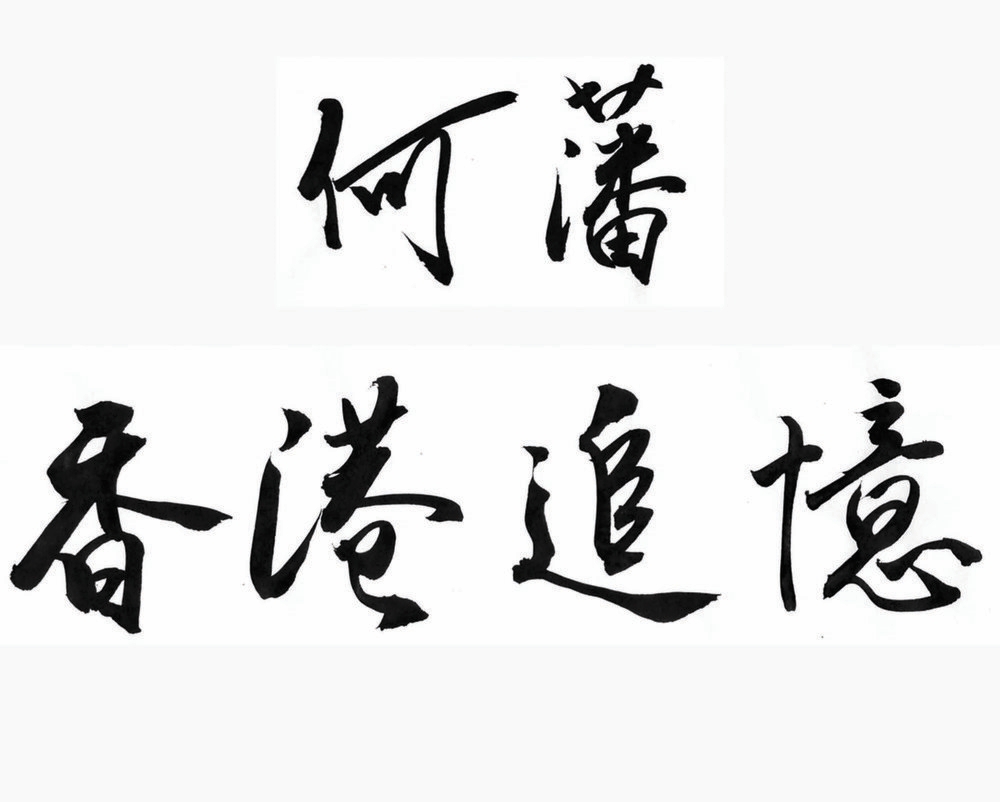 何藩
香港追憶